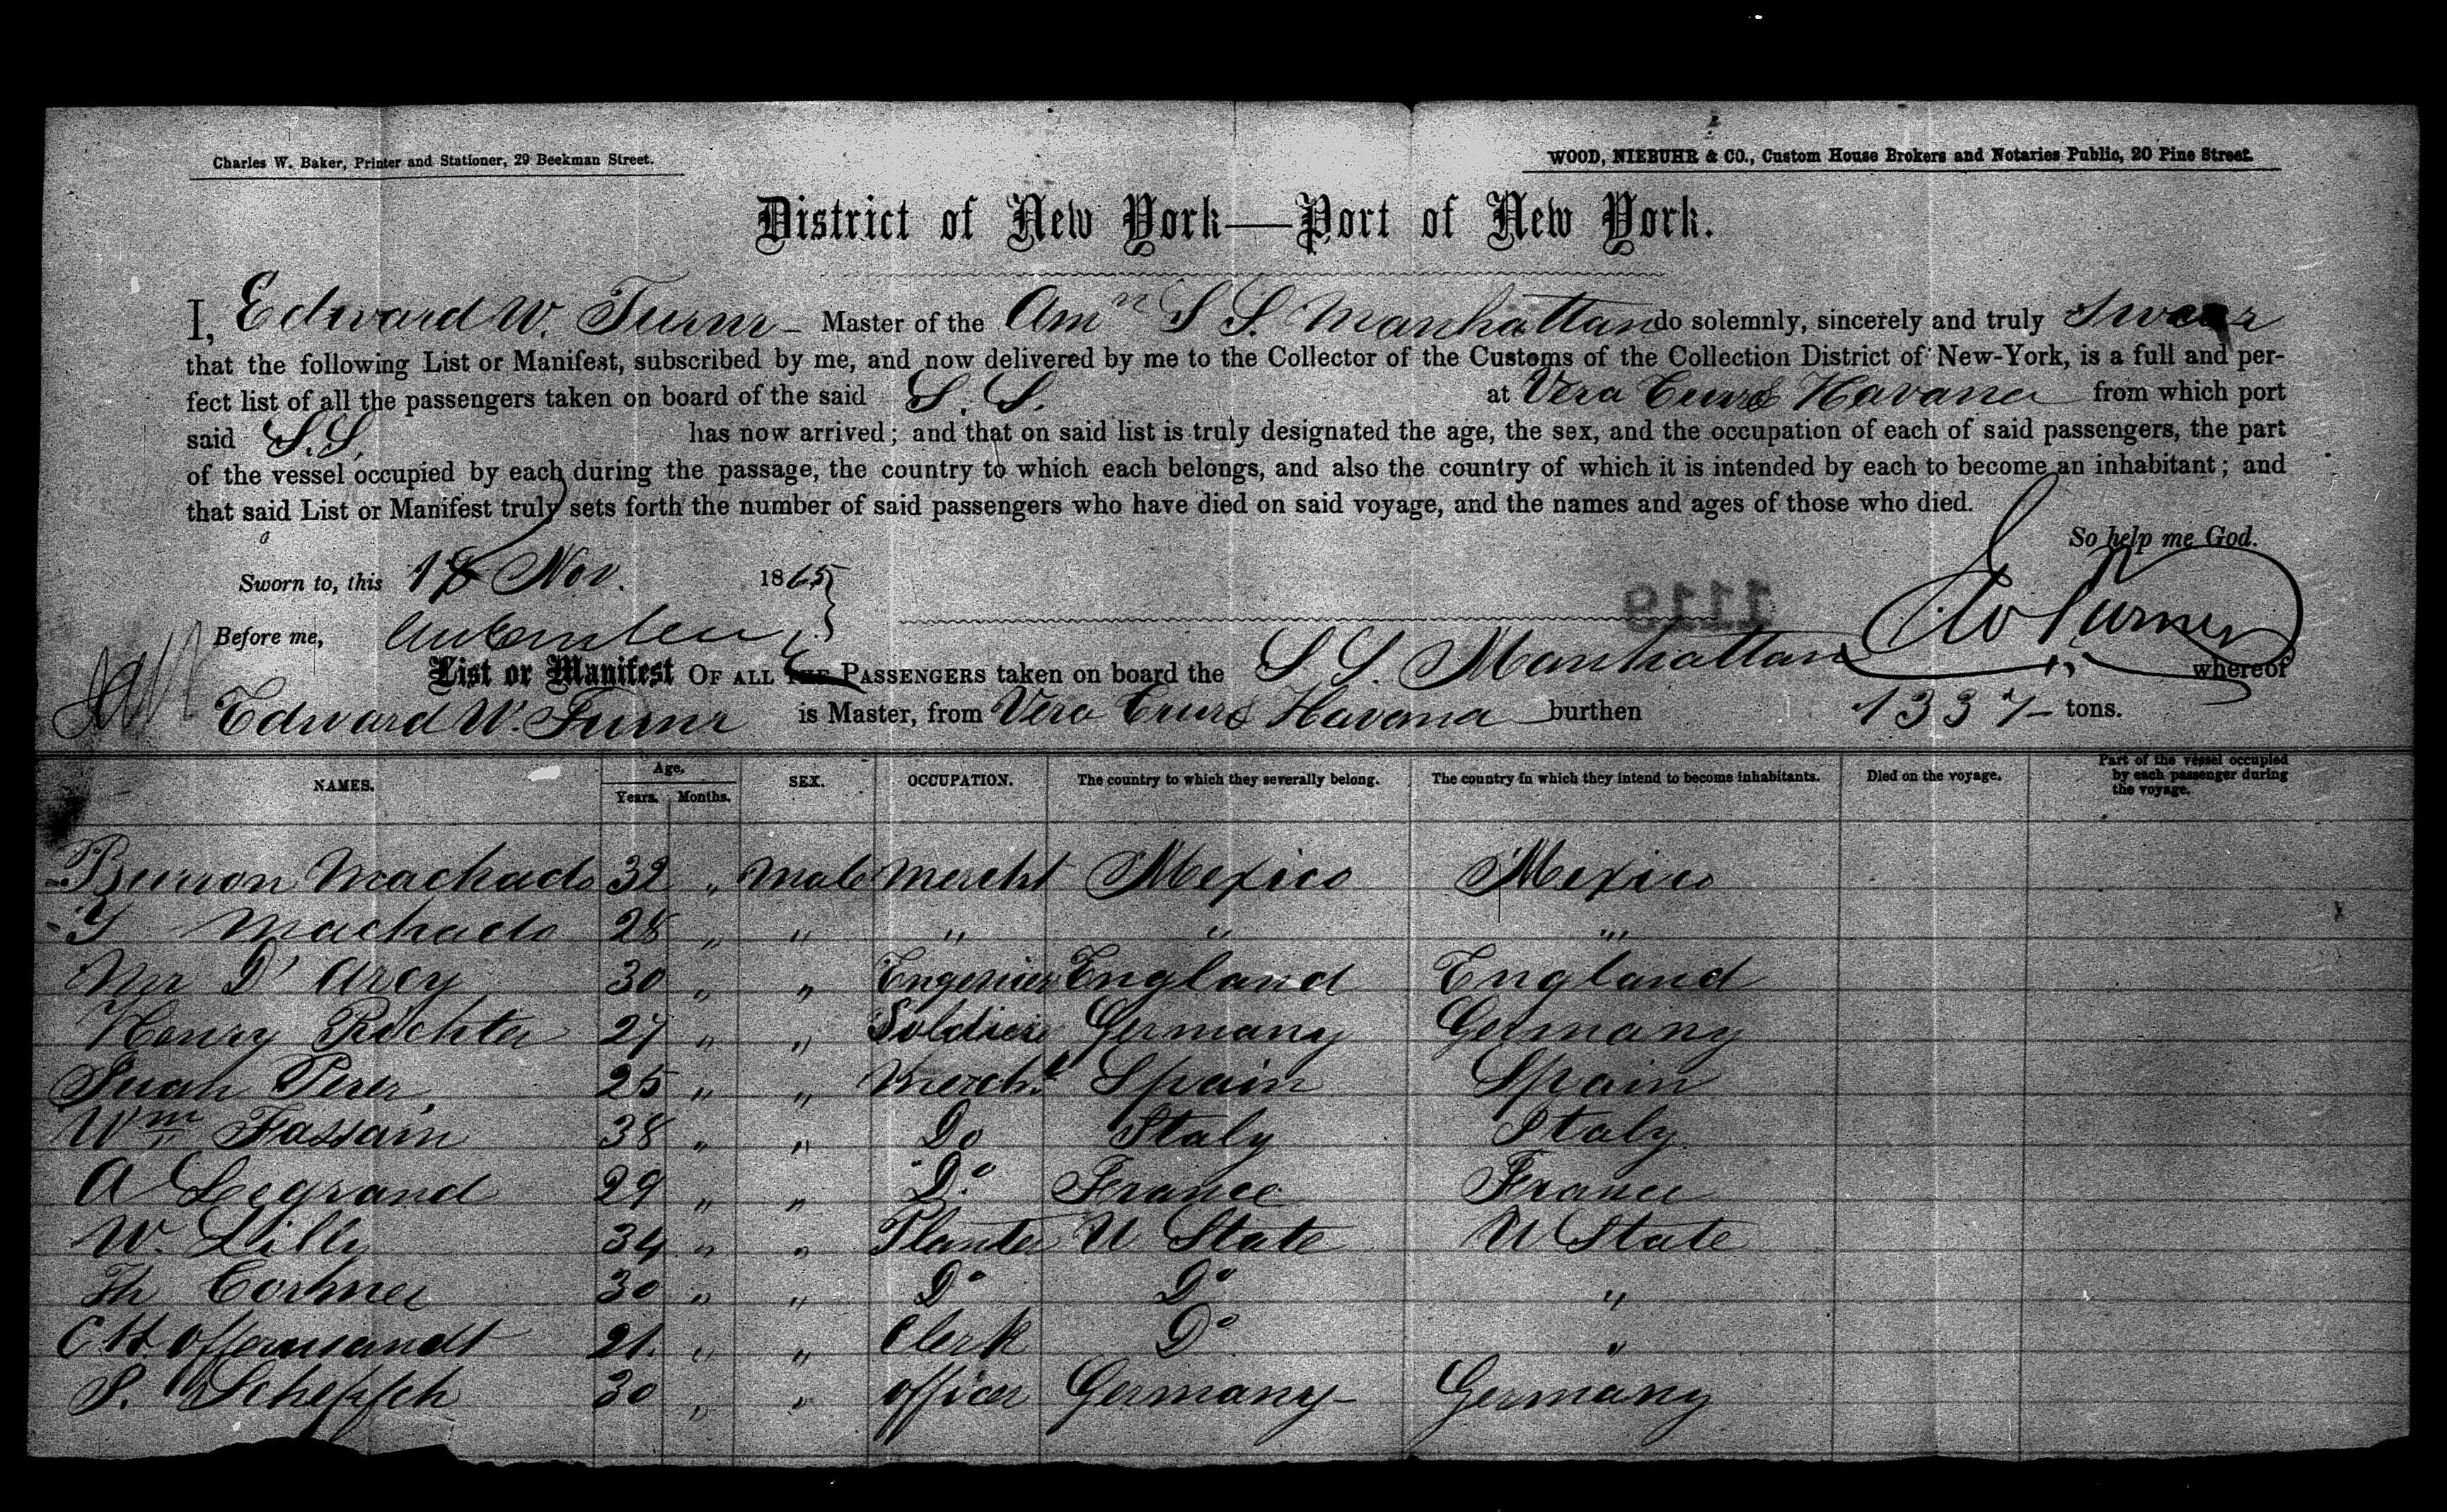 Charles W. Baker, Printer and Stationer, 29 Beekman Street.
WOOD, NIEBUHR & CO., Custom House Brokers and Notaries Public, 20 Pine Street.
District of New York—Port of New York.
I, Edward W. Turner – Master of the Amn S S. Manhattan do solemnly, sincerely and truly Swear
that the following List or Manifest, subscribed by me, and now delivered by me to the Collector of the Customs of the Collection District of New-York, is a full and per-
fect list of all the passengers taken on board of the said S. S. at Vera Cruz & Havana from which port
said S.S. has now arrived; and that on said list is truly designated the age, the sex, and the occupation of each of said passengers, the part
of the vessel occupied by each during the passage, the country to which each belongs, and also the country of which it is intended by each to become an inhabitant; and
that said List or Manifest truly sets forth the number of said passengers who have died on said voyage, and the names and ages of those who died.
So help me God.
Sworn to, this 18 Nov. 1865
1119
Before me,
E W Turner
List or Manifest OF ALL THE PASSENGERS taken on board the S S. Manhattan whereof
Edward W. Turner is Master, from Vera Cruz & Havana burthen 1337 – tons.
NAMES. Age. Years. Months. SEX. OCCUPATION. The country to which they severally belong. The country in which they intend to become inhabitants. Died on the voyage. Part of the vessel occupied by each passenger during the voyage.
Machado 32 " Male Mercht Mexico Mexico
Y Machado 28 " " " " "
Mr D' Arcy 30 " " Engenier England England
Henry Richter 27 " " Soldier Germany Germany
Juan Perez 25 " " Mercht Spain Spain
Wm Fassain 38 " " Do Italy Italy
A Legrand 29 " " Do France France
W. Lilly 34 " " Planter U State U State
Th 30 " " Do Do "
C H 21 " " Clerk Do "
S. 30 " " officer Germany – Germany